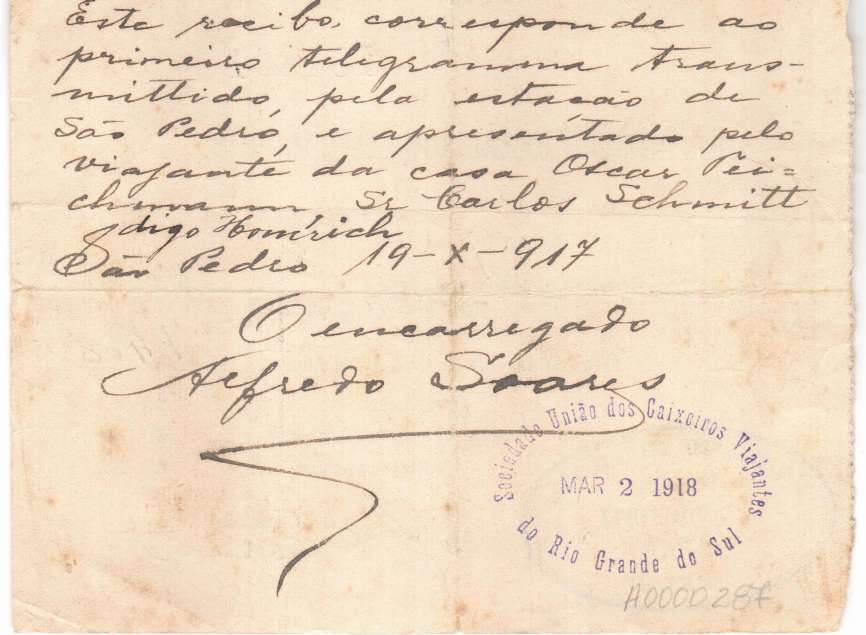 Este recibo, corresponde ao
primeiro telegramma trans-
mittido, pela estação de
São Pedro, e apresentado pelo
viajante da casa Oscar Tei=
chmann, Sr Carlos Schmitt
digo Homrich
São Pedro 19-X-917
O encarregado
Alfredo Soares
Sociedade União dos Caixeiros Viajantes
MAR 2 1918
do Rio Grande do Sul
A0000287